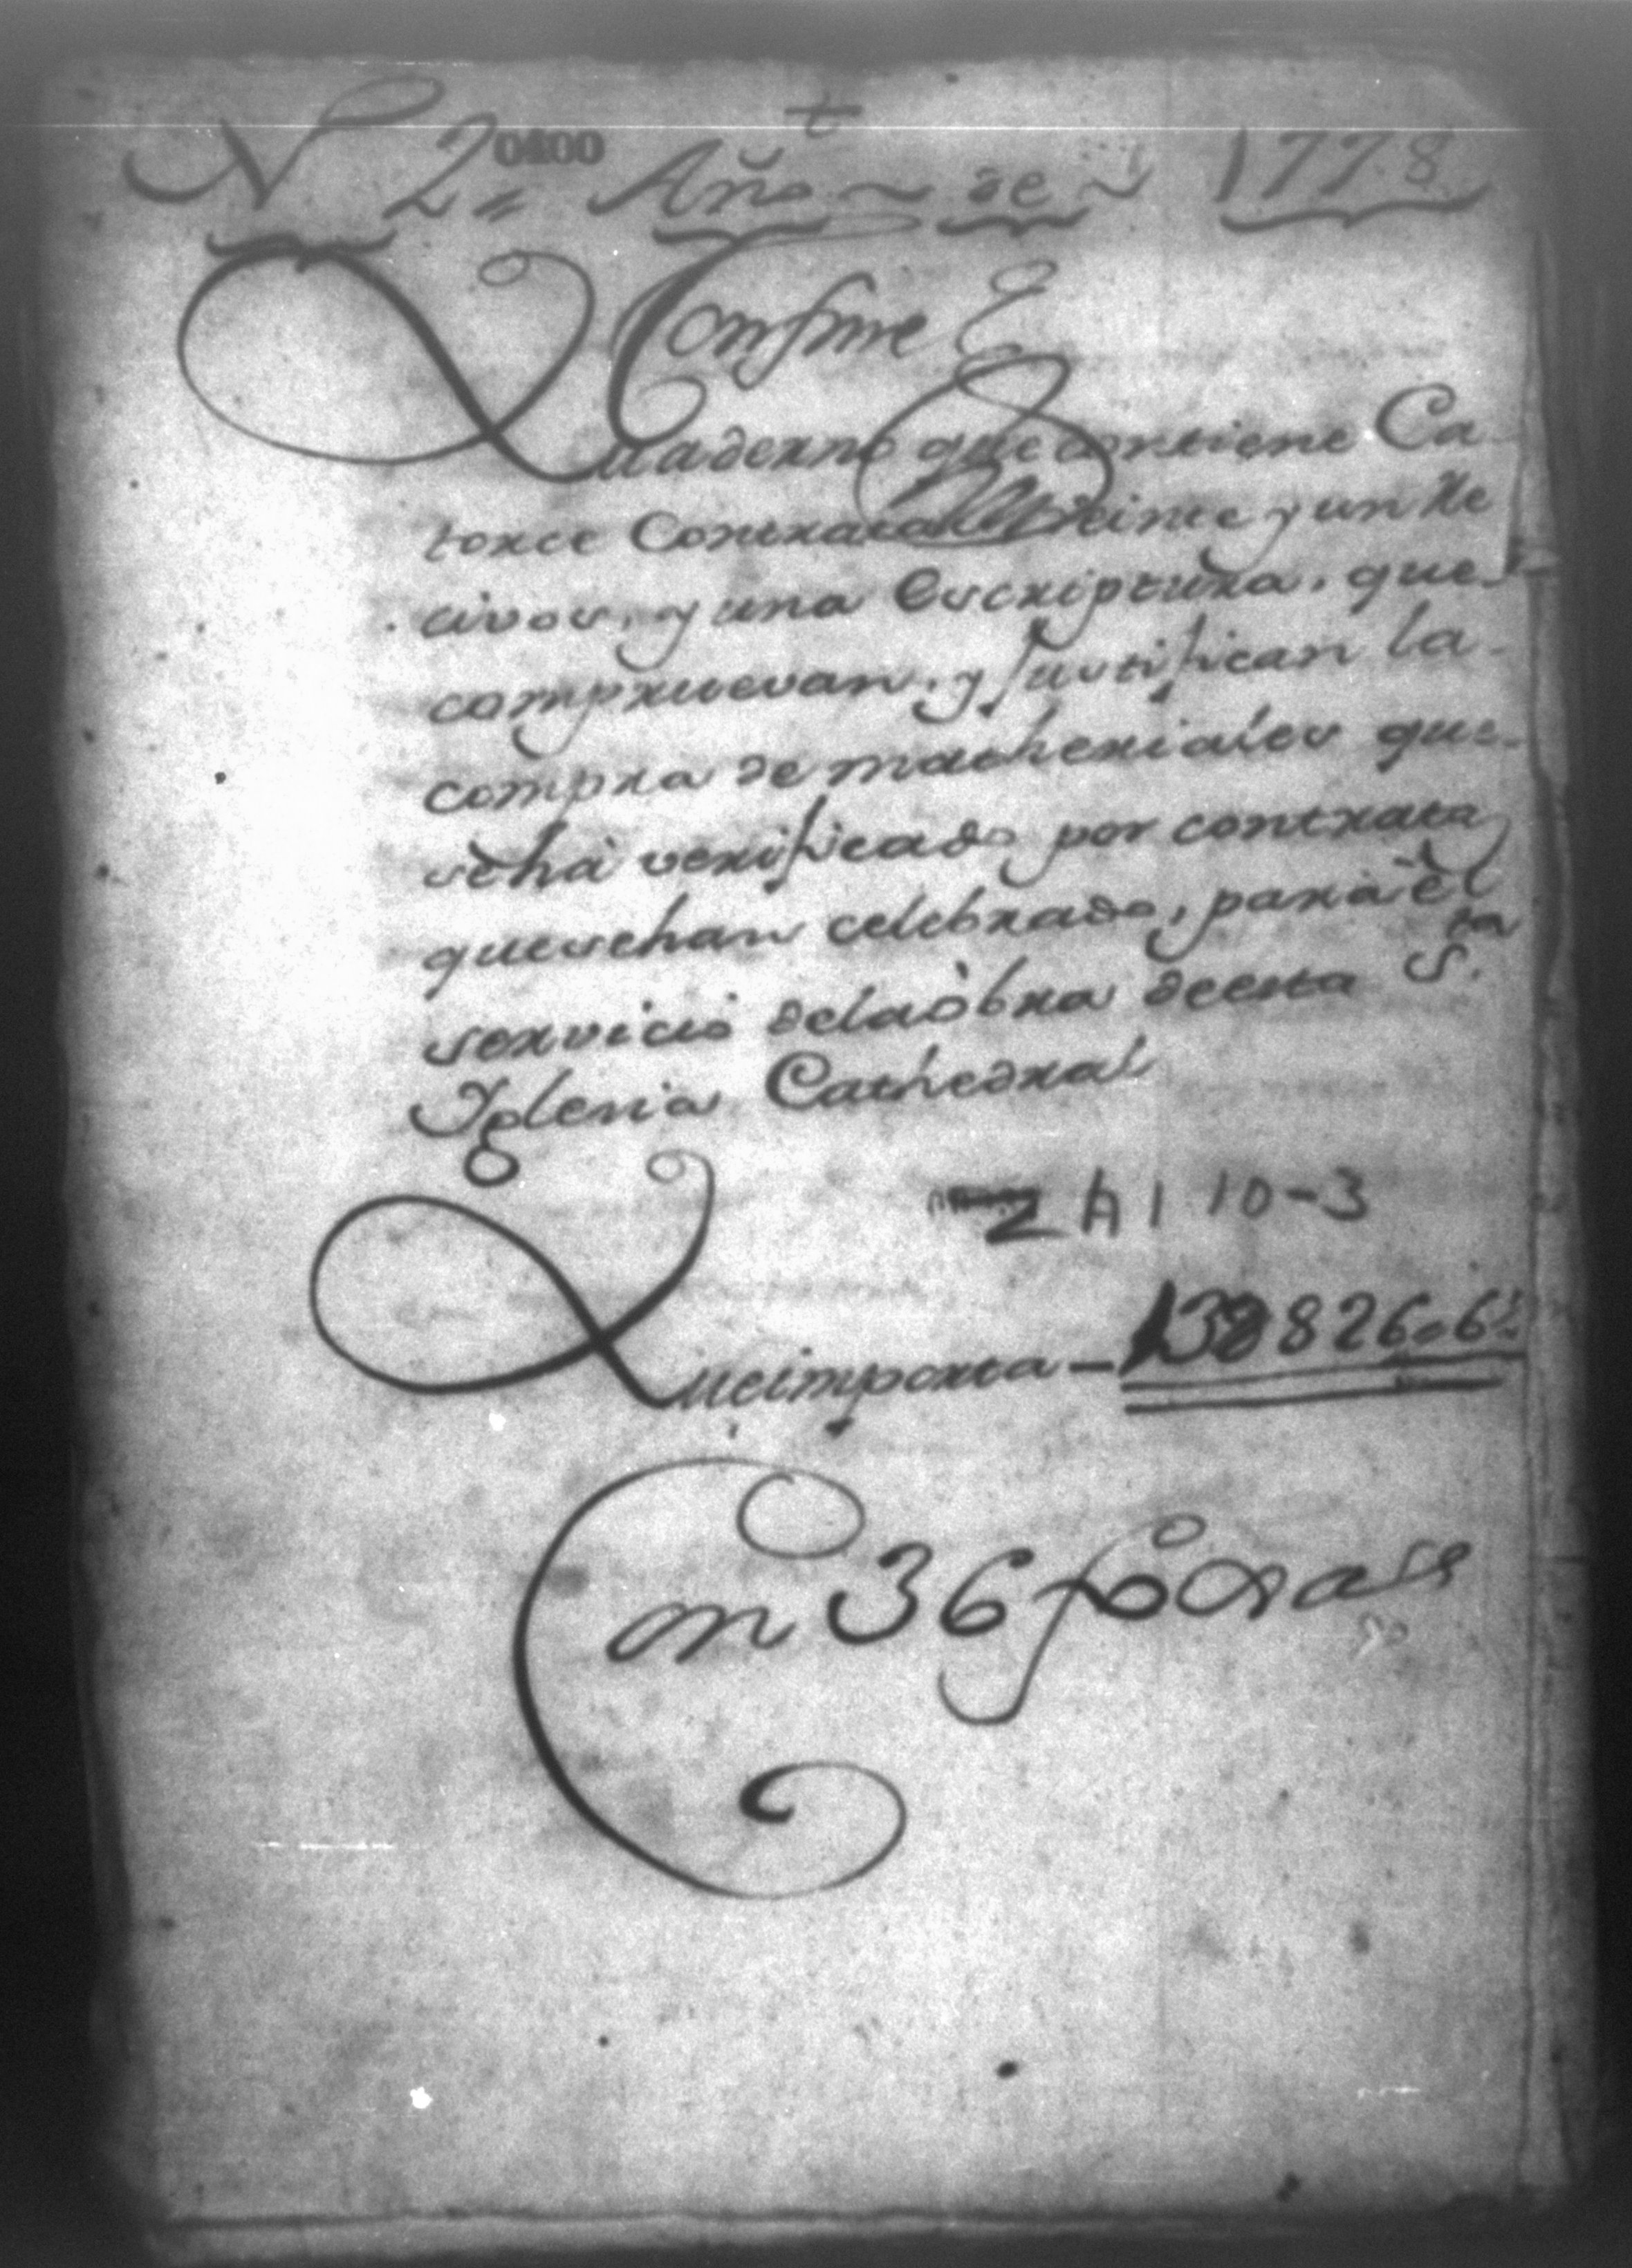 †
N 2,, Año de 1778
0400
Confirme
Quaderno que contiene Ca
torze Contratas treinta y un Re
civos, y una Escriptura, que
compruevan, y Justifican la
compra de matheriales que
se ha verificado por contrata
que se han celebrado, para èl
servicio de la òbra de esta S.ta
Iglesia Cathedral
2 A 1 10-3
Que importa - 138826,,6
Con 36 foxas